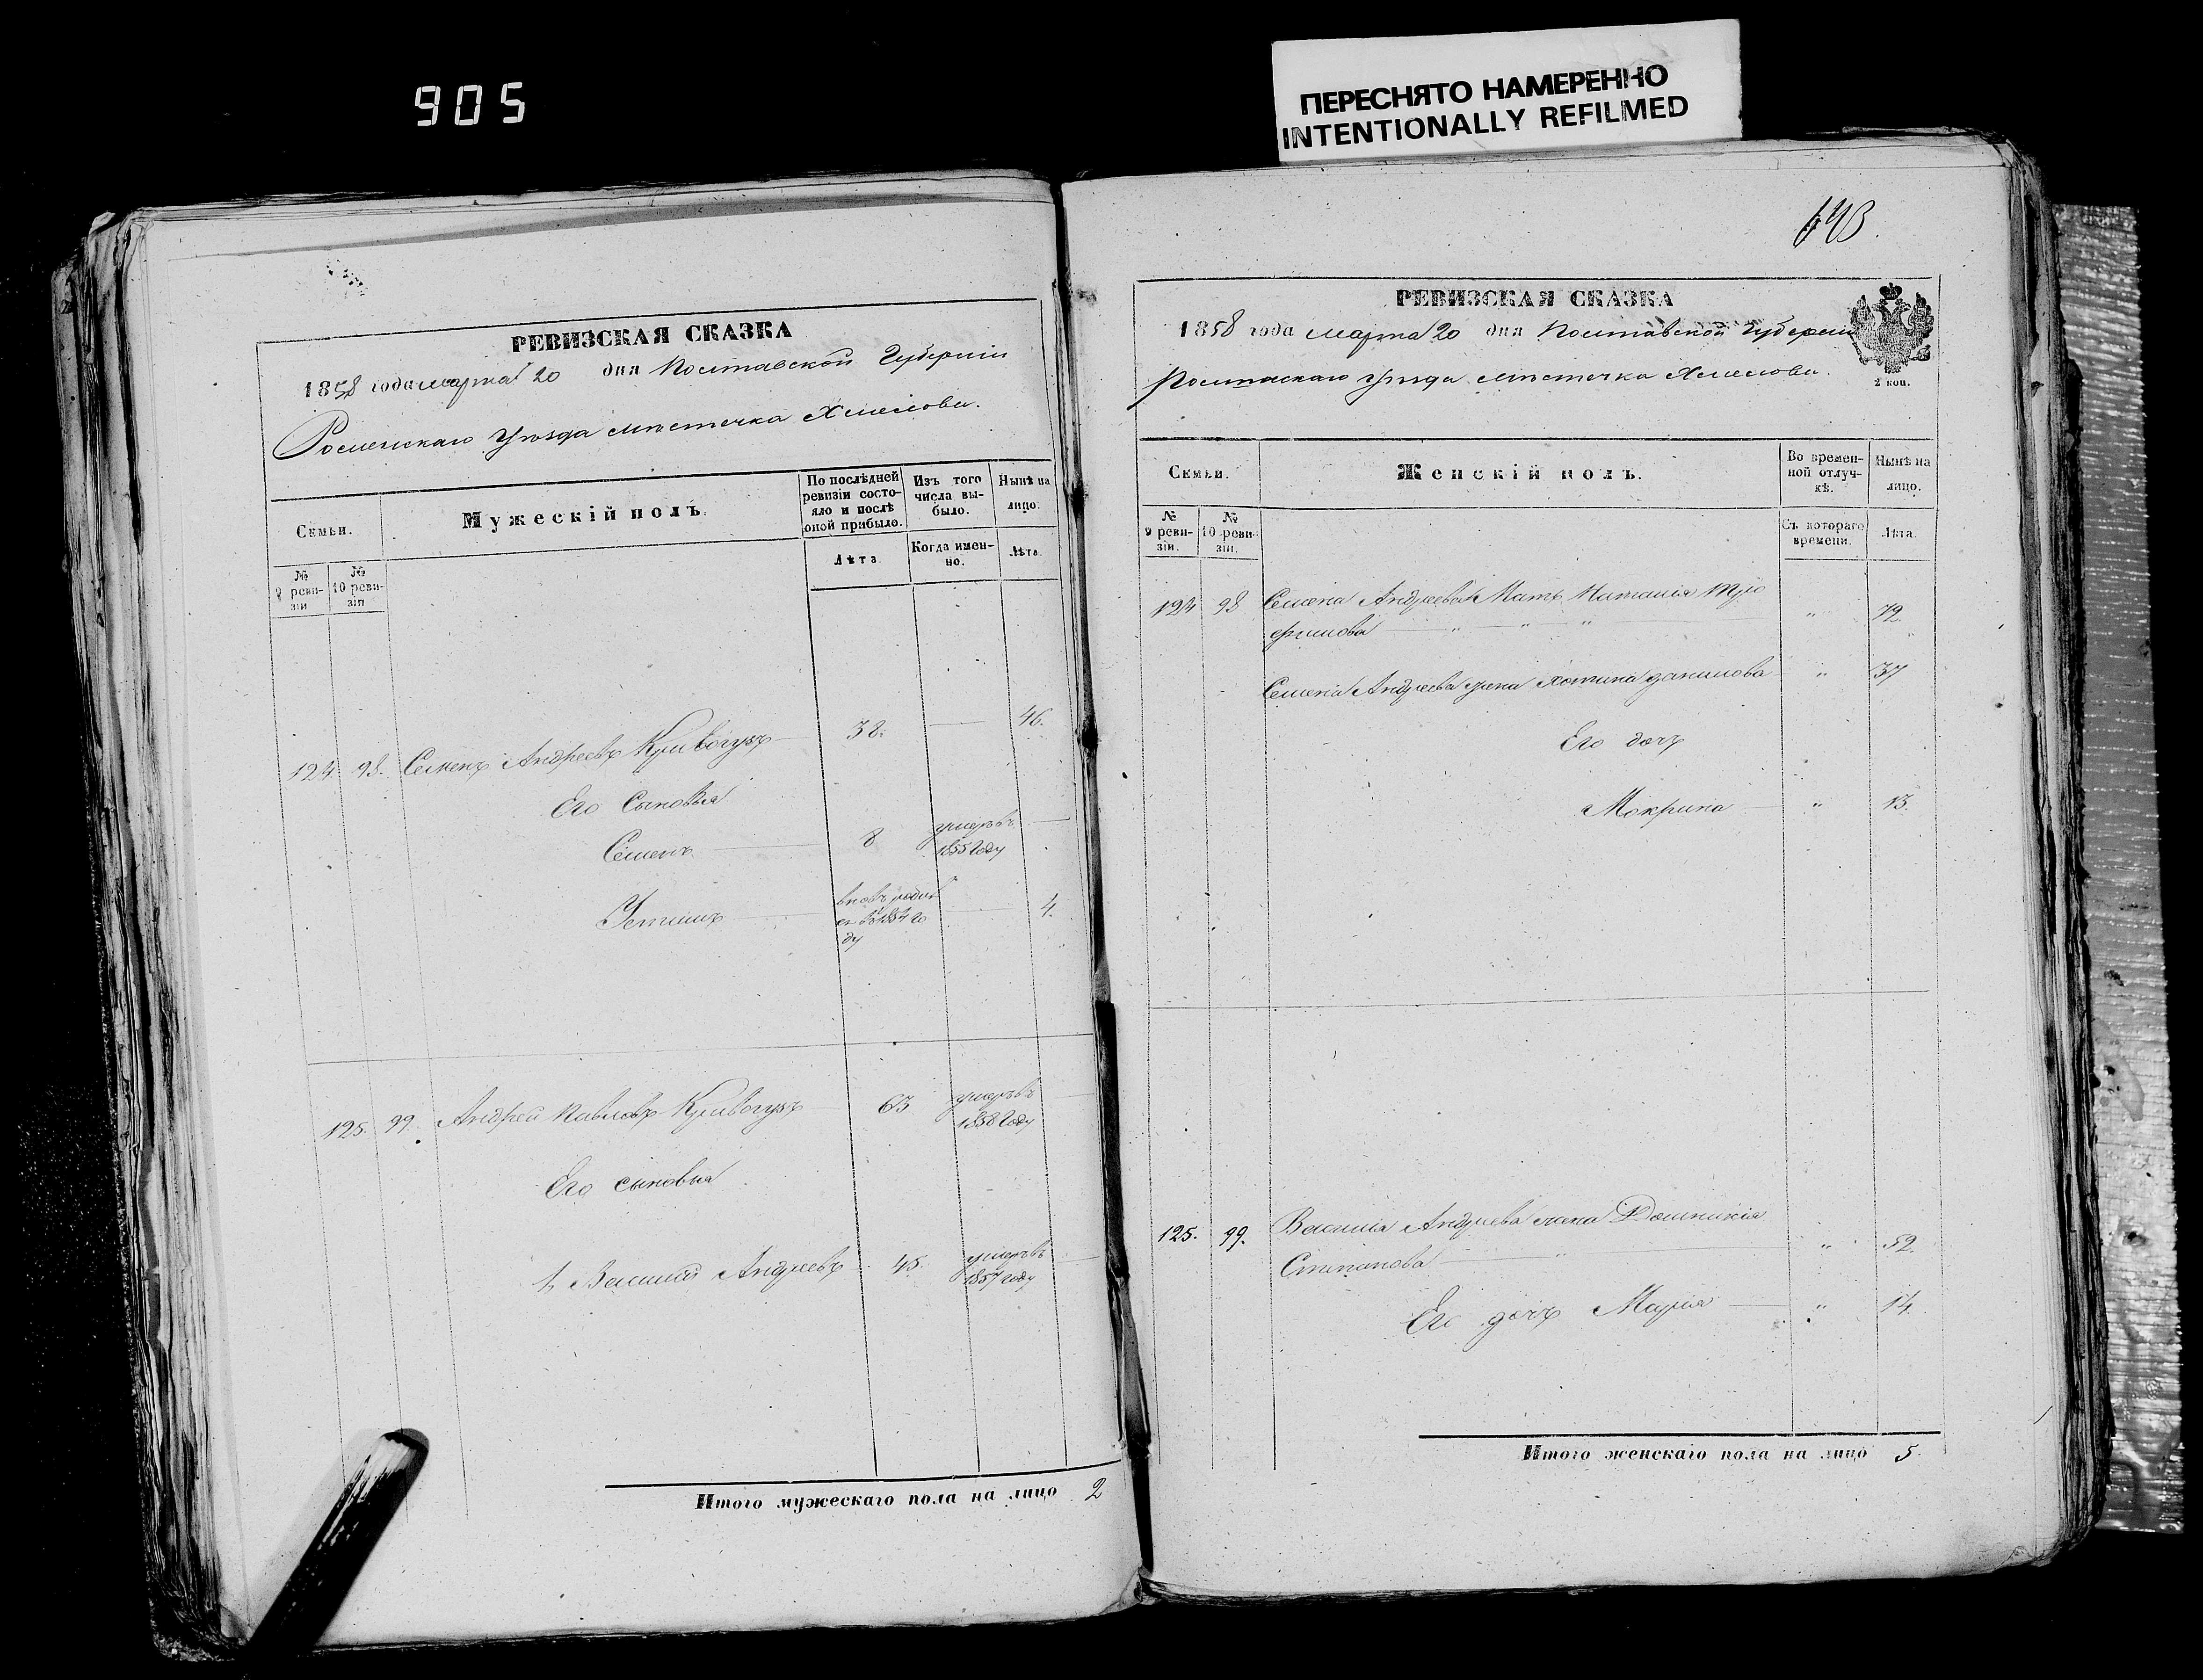 905
ПЕРЕСНЯТО НАМЕРЕННО
INTENTIONALLY REFILMED
РЕВИЗСКАЯ СКАЗКА
1858 года марта 20 дня Полтавской Губерніи
Роменскаго Уѣзда мѣстечка Хмелова.
Семьи.
Мужескій полъ.
По послѣдней ревизіи состояло и послѣ оной прибыло.
Изъ того числа выбыло.
Нынѣ на лицо.
№ 9 ревизіи
№ 10 ревизіи
Лѣта.
Когда именно.
Лѣта.
124. 98. Семенъ Андреевъ Кривогузъ 38. 46.
Его Сыновья
Семенъ 8 умеръ въ 1855 Году
Устимъ вновь родил ся въ 1854 го ду 4.
125. 99. Андрей Павловъ Кривогузъ 63 умеръ въ 1858 Году
Его сыновья
1, Василий Андреевъ 45. умеръ въ 1857 году
Итого мужескаго пола на лицо 2
РЕВИЗСКАЯ СКАЗКА
1858 года марта 20 дня Полтавской Губерніи
Роменскаго Уѣзда мѣстечка Хмелова.
2 коп.
Семьи.
Женскій полъ.
Во временной отлучкѣ.
Нынѣ на лицо.
№ 9 ревизіи.
№ 10 ревизіи.
Съ котораго времени.
Лѣта.
124 98 Семена Андреева Мать Наталія Тро
фимова " " " " 72.
Семена Андреева жена Хотина Данилова " 37
Его дочь
Мокрина " 13.
125. 99. Василія Андреева жена Домникія
Степанова " " 52.
Его дочь Марія " 14.
Итого женскаго пола на лицо 5.